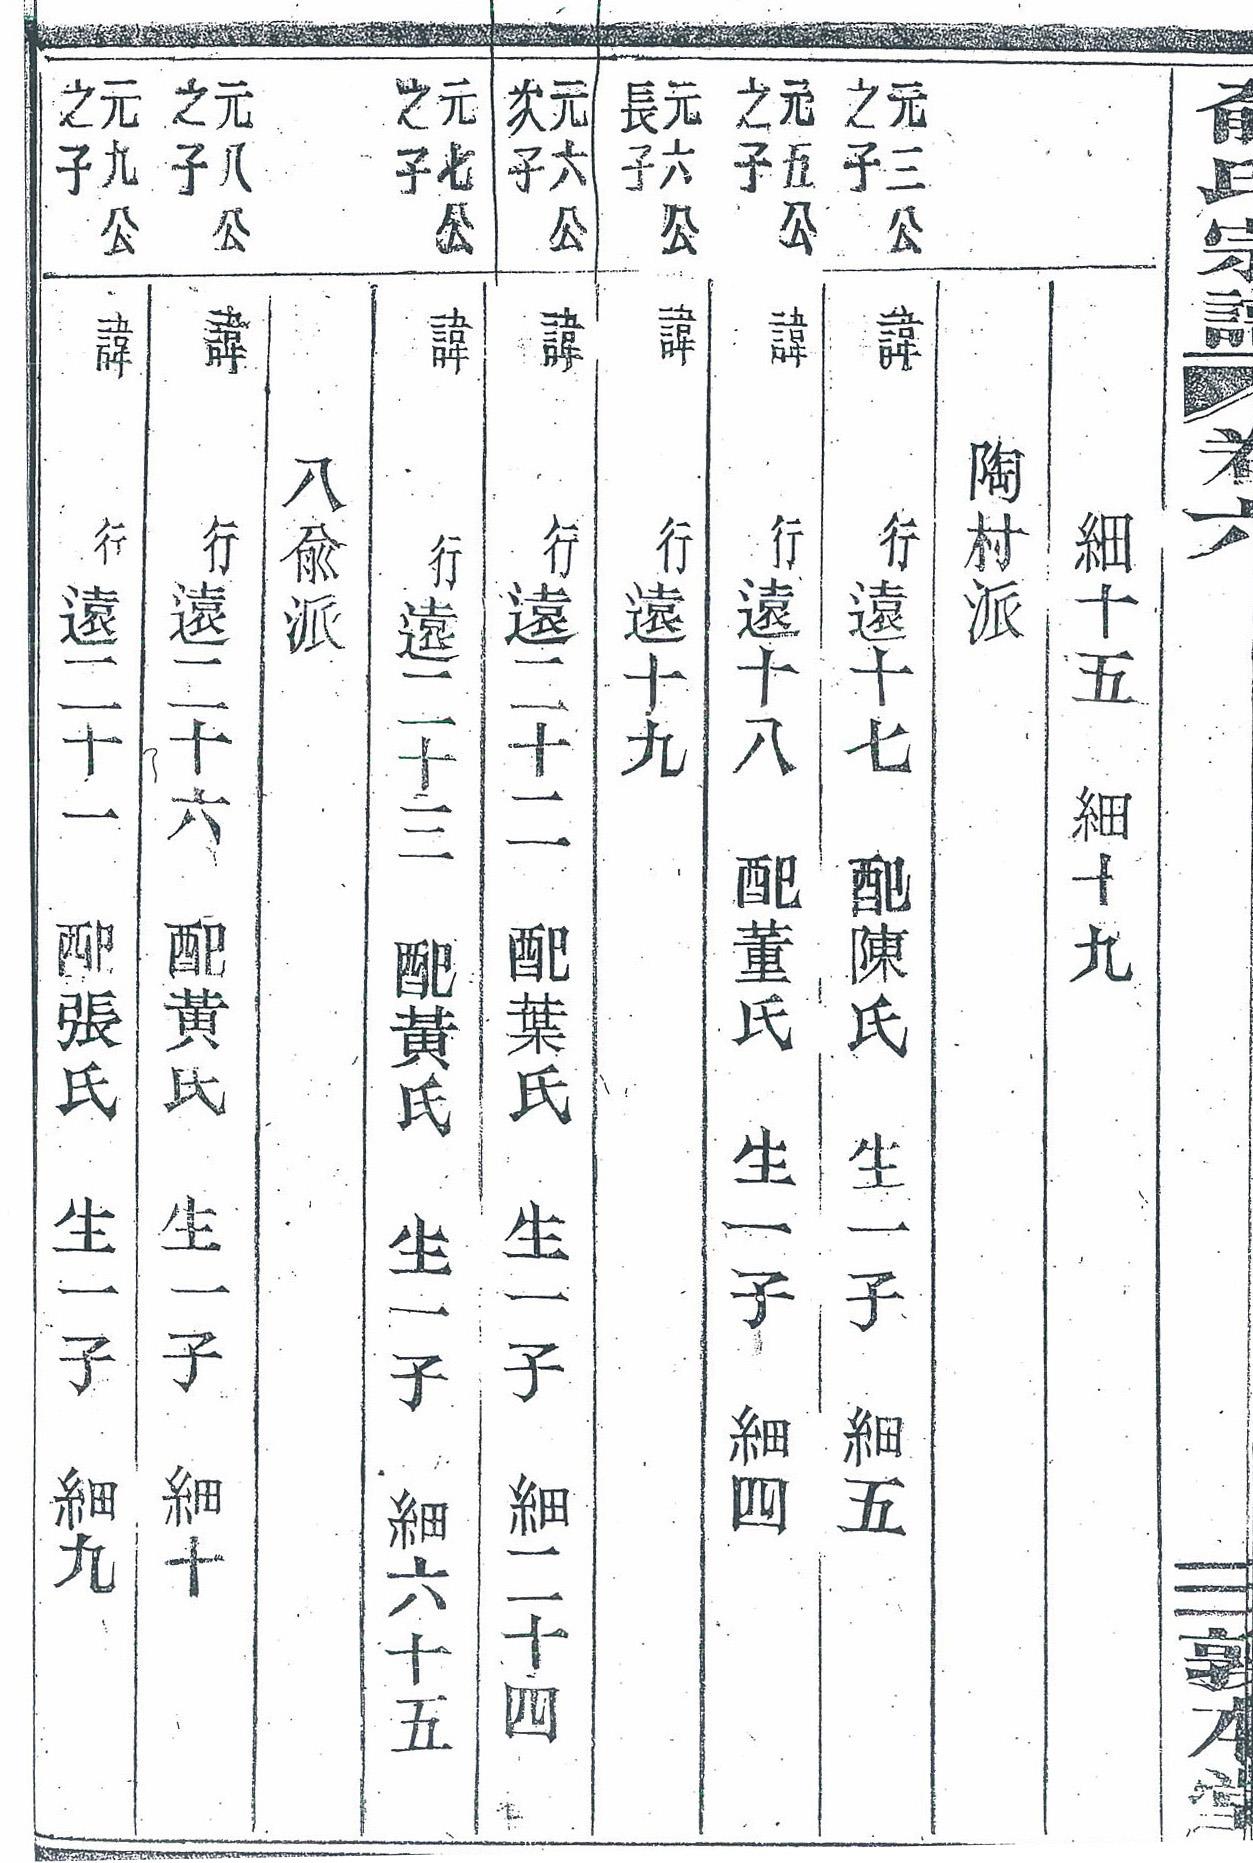 俞氏宗譜 卷六 三 敦本堂
細十五 細十九
陶村派
元三公之子 諱 行遠十七 配陳氏 生一子 細五
元五公之子 諱 行遠十八 配董氏 生一子 細四
元六公長子 諱 行遠十九
元六公次子 諱 行遠二十二 配葉氏 生一子 細二十四
元七公之子 諱 行遠二十三 配黃氏 生一子 細六十五
八俞派
元八公之子 諱 行遠二十六 配黃氏 生一子 細十
元九公之子 諱 行遠二十一 配張氏 生一子 細九